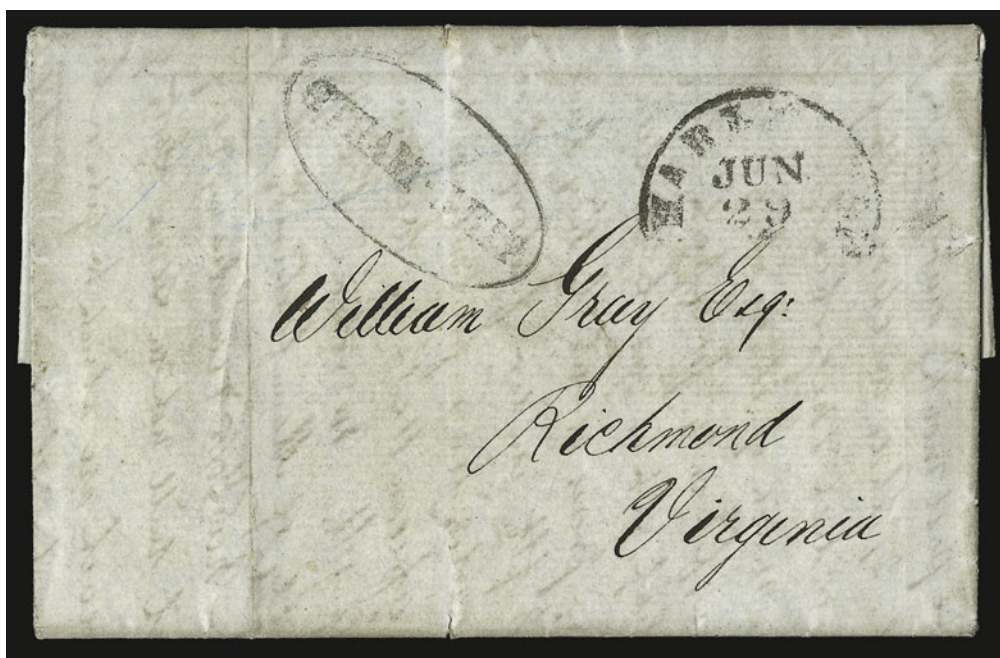 STEAM-SHIP
JUN
29
William Gray Esq:
Richmond
Virginia